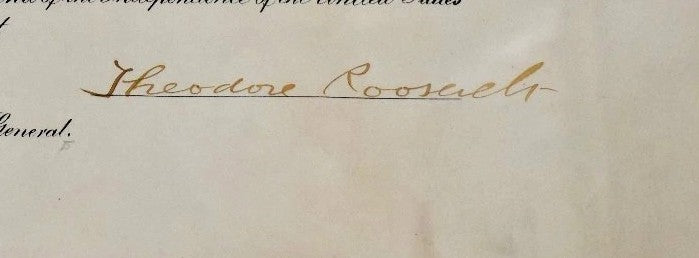 of the Independence of the United States
Theodore Roosevelt
General.